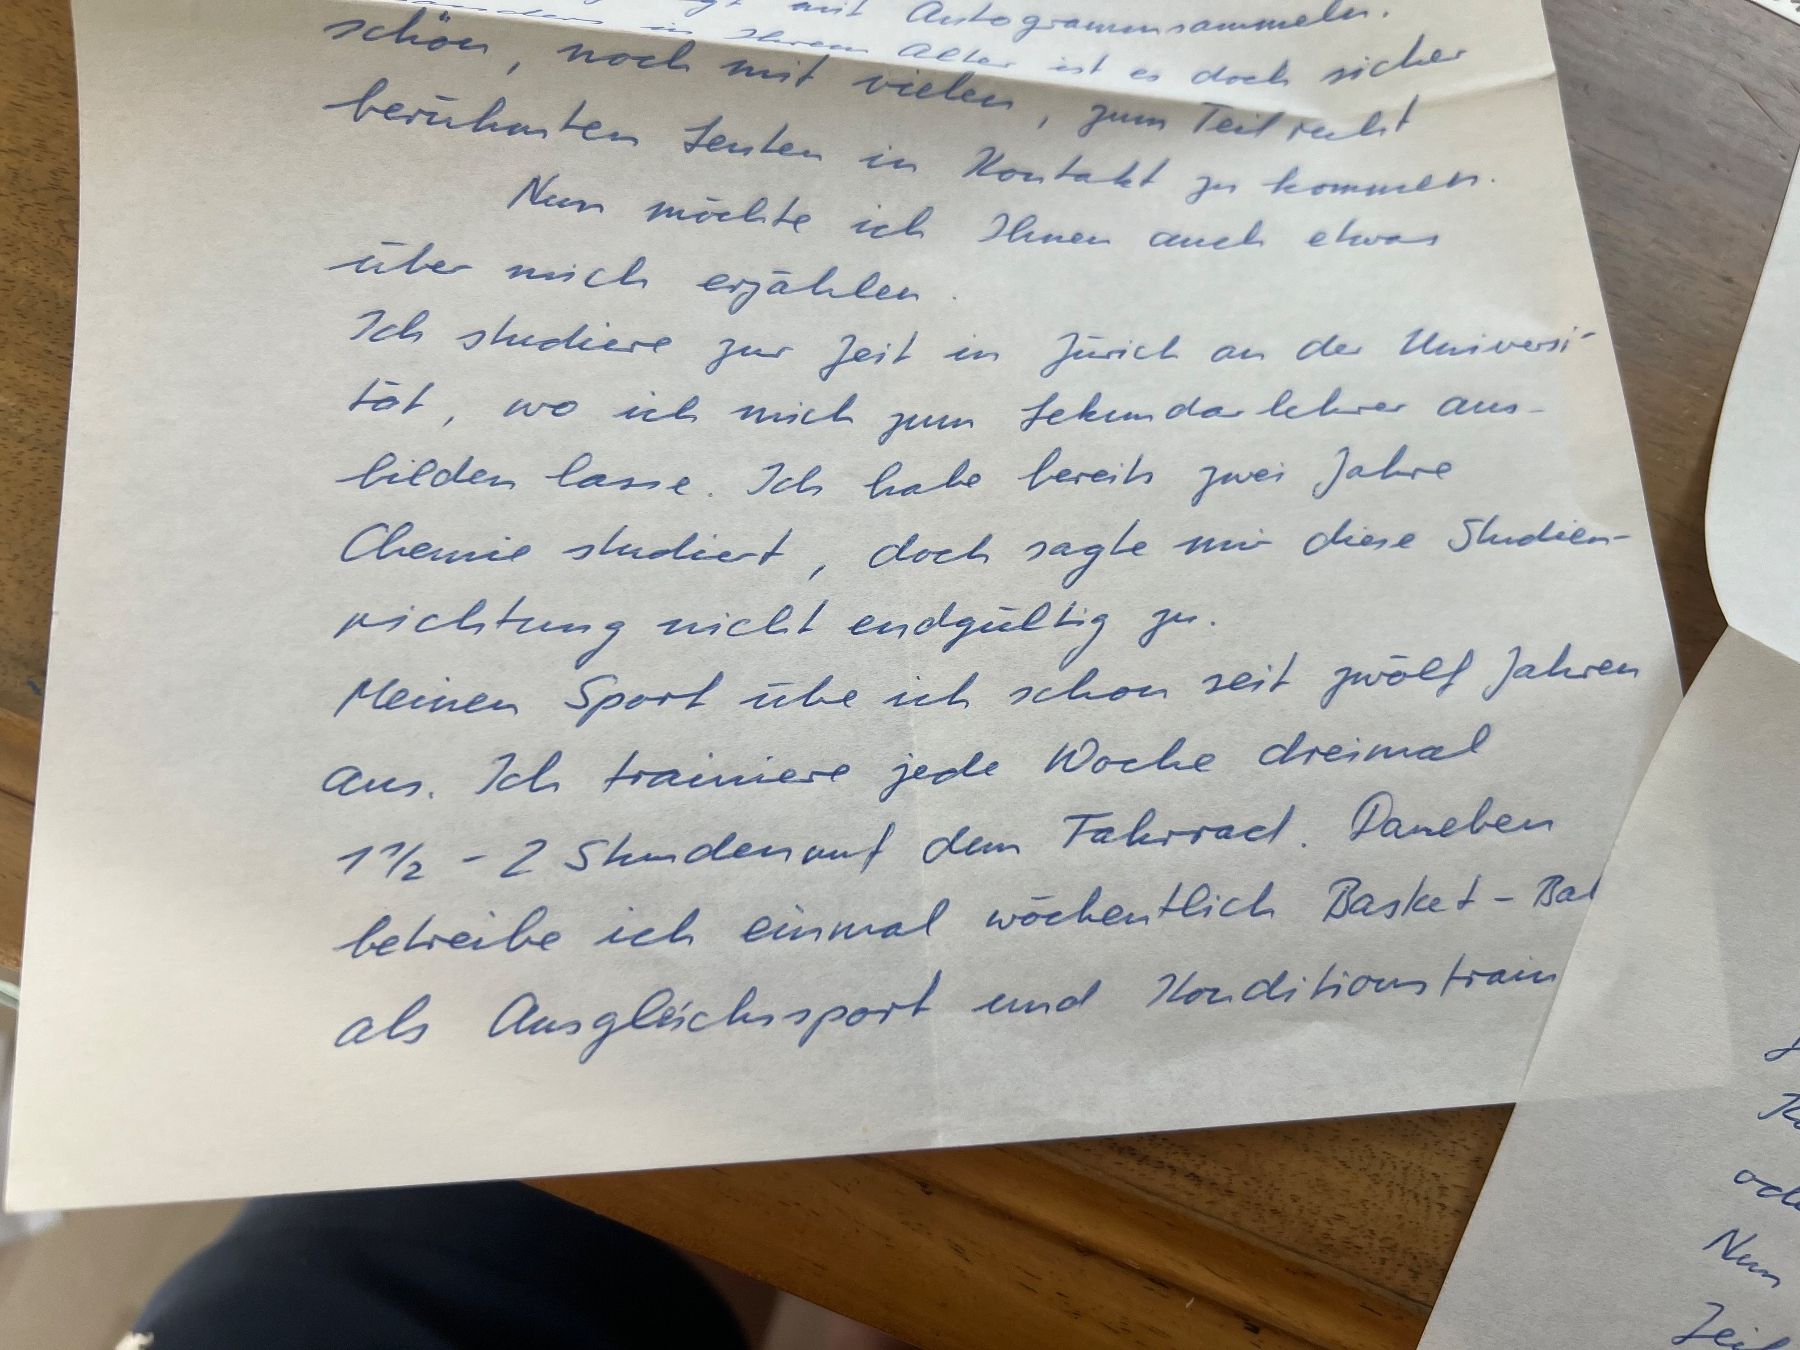 mit Autogrammsammeln.
in Ihrem Alter ist es doch sicher
schön, noch mit vielen, zum Teil recht
berühmten Leuten in Kontakt zu kommen.
Nun möchte ich Ihnen auch etwas
über mich erzählen.
Ich studiere zur Zeit in Zürich an der Universi-
tät, wo ich mich zum Sekundarlehrer aus-
bilden lasse. Ich habe bereits zwei Jahre
Chemie studiert, doch sagte mir diese Studien-
richtung nicht endgültig zu.
Meinen Sport übe ich schon seit zwölf Jahren
aus. Ich trainiere jede Woche dreimal
1 1/2 - 2 Stunden auf dem Fahrrad. Daneben
betreibe ich einmal wöchentlich Basket-Bal
als Ausgleichssport und Konditionstrain
Nun